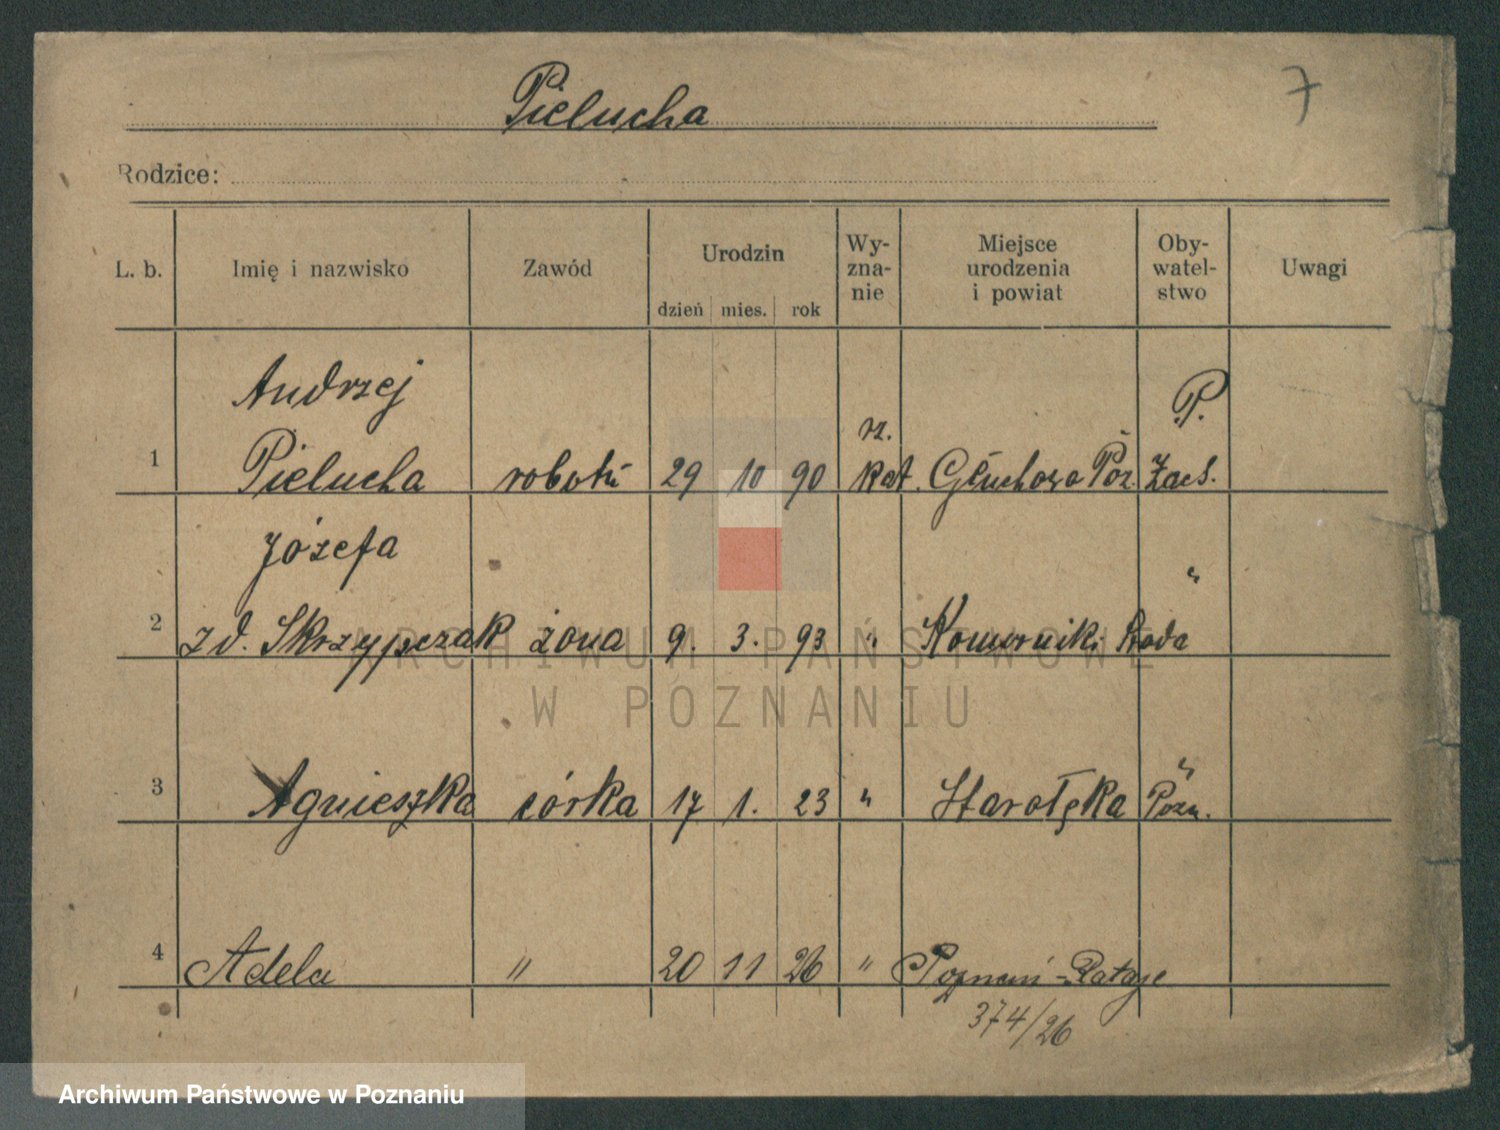 Pielucha
7
Rodzice:
L. b. Imię i nazwisko Zawód Urodzin dzień mies. rok Wy-zna-nie Miejsce urodzenia i powiat Oby-watel-stwo Uwagi
Andrzej
rz. P.
1 Pielucha robotn 29 10 90 kat. Głuchowo Poz. Zach.
Józefa "
2 zd. Skrzypczak żona 9. 3. 93 " Komorniki Środa
"
3 Agnieszka córka 17 1. 23 " Starołęka Pozn.
4 Adela " 20 11 26 " Poznań-Rataje
374/26
ARCHIWUM PAŃSTWOWE
W POZNANIU
Archiwum Państwowe w Poznaniu